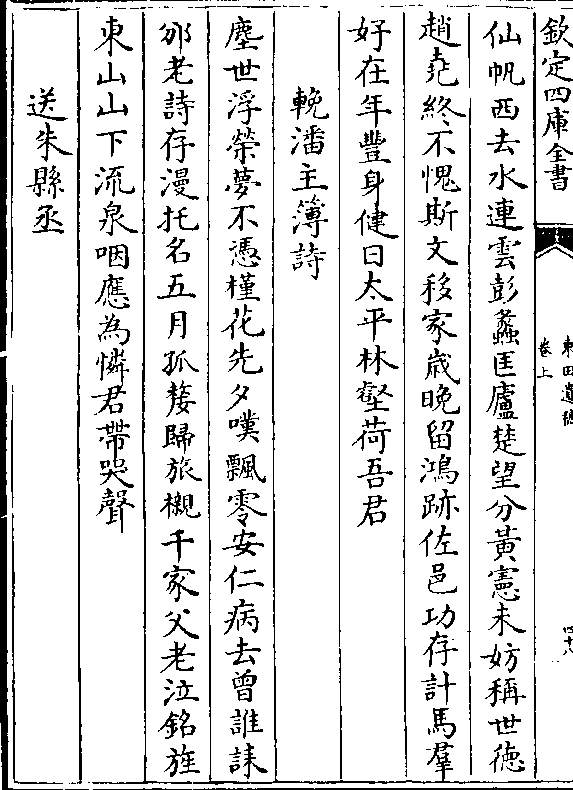 欽定四庫全書
東田遺稿
卷上
四十八
仙帆西去水連雲彭蠡匡廬楚望分黃憲未妨稱世德
趙堯終不愧斯文移家歲晚留鴻跡佐邑功存計馬羣
好在年豐身健日太平林壑荷吾君
輓潘主簿詩
塵世浮榮夢不憑槿花先夕嘆飄零安仁病去曾誰誄
邠老詩存漫托名五月孤嫠歸旅櫬千家父老泣銘旌
東山山下流泉咽應為憐君帶哭聲
送朱縣丞